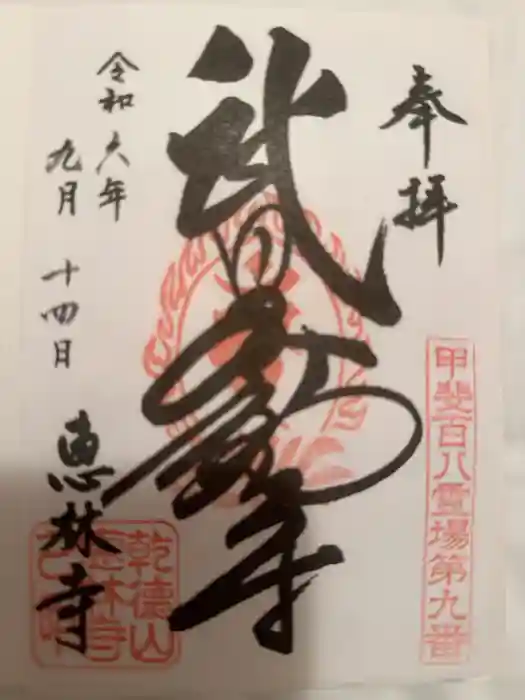 奉拝
甲斐百八霊場第九番
武田不動尊
令和六年
九月十四日
恵林寺
乾徳山